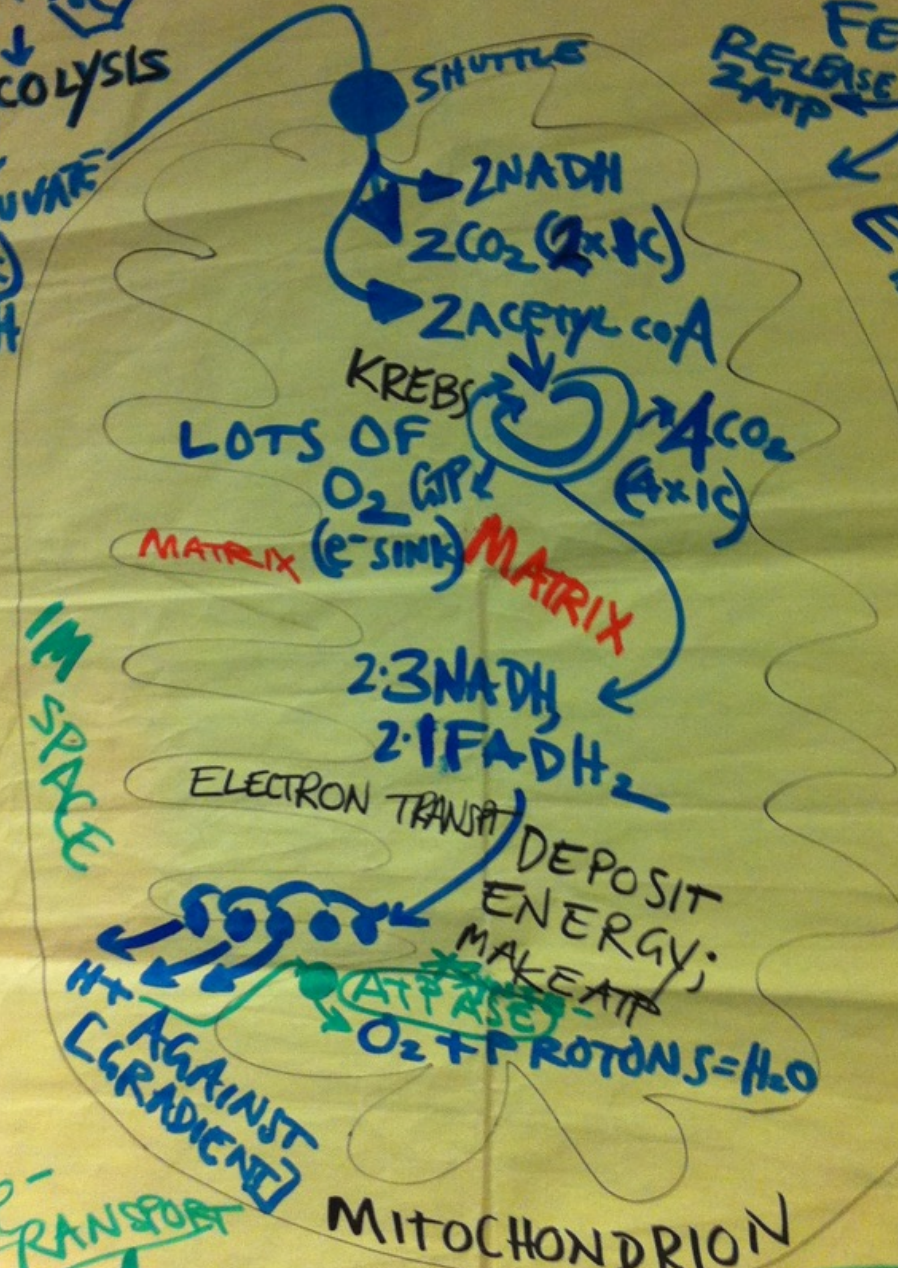 COLYSIS
SHUTTLE
FE
RELEASE
2ATP
UVATE
2NADH
2CO2 (2x1C)
2ACETYL COA
KREBS
4CO2
(4x1C)
LOTS OF
O2
GTP
(e- SINK)
MATRIX
MATRIX
IM SPACE
2·3NADH,
2·1FADH2
ELECTRON TRANSPT
DEPOSIT
ENERGY;
MAKE ATP
H+
ATPASE
O2 + PROTONS = H2O
[AGAINST
GRADIENT]
e-
TRANSPORT
MITOCHONDRION